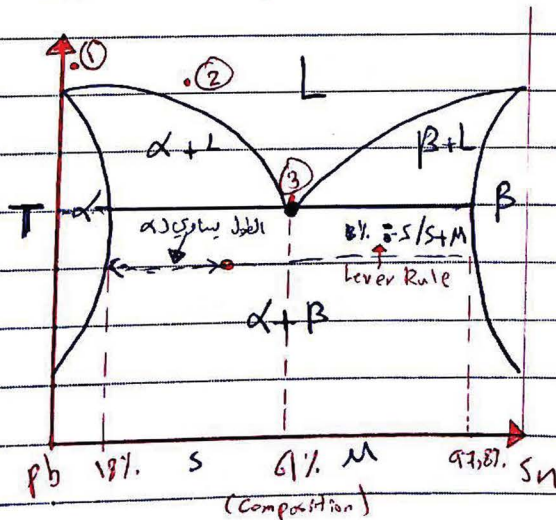 ①
② L
α + L β + L
③
T α β
الطول يساوي α β% = S/S+M
Lever Rule
α + β
pb 18% S 61% M 97,8% Sn
(Composition)